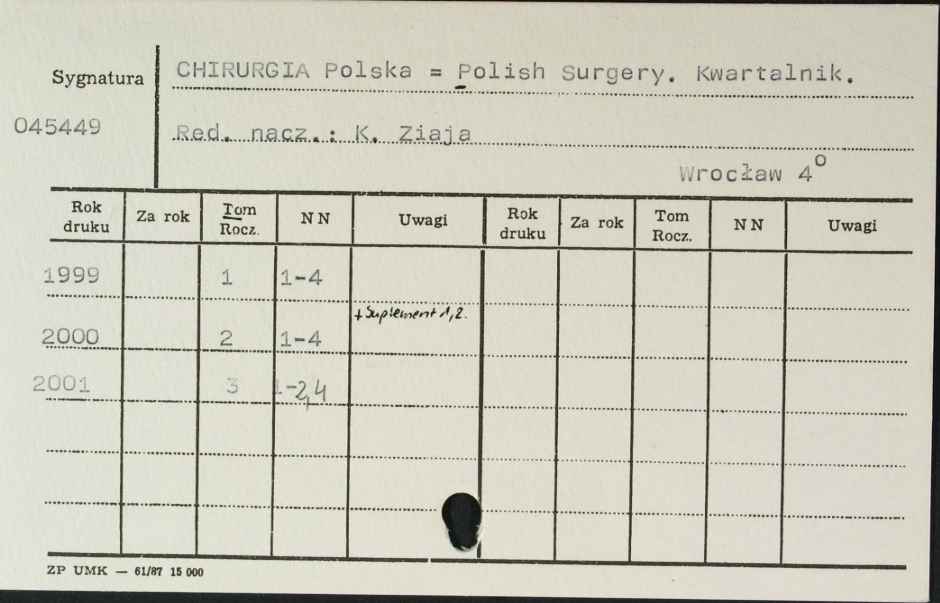 Sygnatura CHIRURGIA Polska = Polish Surgery. Kwartalnik.
045449 Red. nacz.: K. Ziaja
Wrocław 4°
Rok druku Za rok Tom Rocz. N N Uwagi Rok druku Za rok Tom Rocz. N N Uwagi
1999 1 1-4
+ Suplement 1,2.
2000 2 1-4
2001 3 1-2,4
ZP UMK — 61/87 15 000